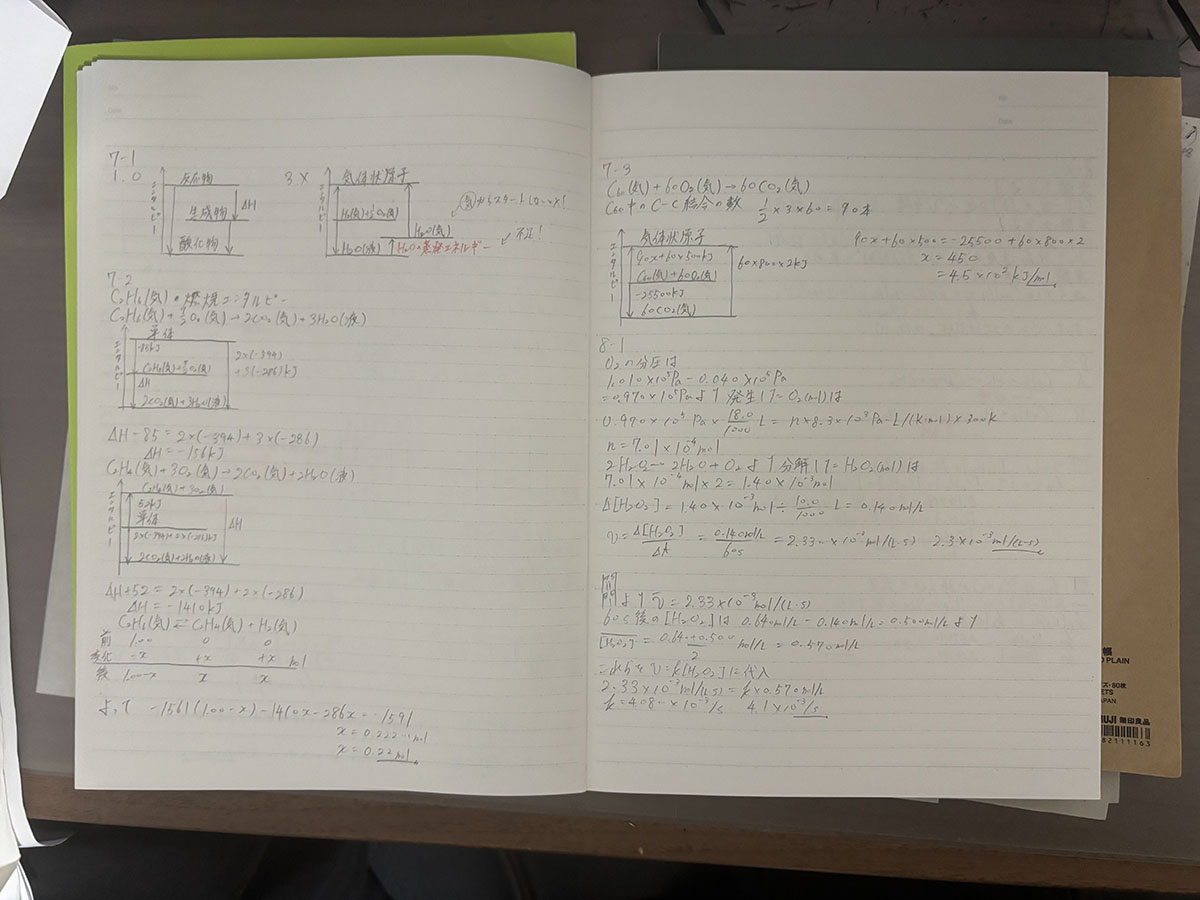 7-1
1.0
エンタルピー
反応物
生成物
ΔH
酸化物
3.X
エンタルピー
気体状原子
H₂(気)+½O₂(気)
H₂O(気)
H₂O(液)
↑H₂Oの蒸発エネルギー
不足!
7-2
C₂H₆(気)の燃焼エンタルピー
C₂H₆(気)+7/2O₂(気)→2CO₂(気)+3H₂O(液)
エンタルピー
単体
-85kJ
C₂H₆(気)+7/2O₂(気)
ΔH
2CO₂(気)+3H₂O(液)
2×(-394)
+3(-286)kJ
ΔH-85=2×(-394)+3×(-286)
ΔH=-1561kJ
C₂H₄(気)+3O₂(気)→2CO₂(気)+2H₂O(液)
エンタルピー
C₂H₄(気)+3O₂(気)
52kJ
単体
2×(-394)+2×(-286)kJ
2CO₂(気)+2H₂O(液)
ΔH
ΔH+52=2×(-394)+2×(-286)
ΔH=-1410kJ
C₂H₆(気)⇄C₂H₄(気)+H₂(気)
前 1.00 0 0
変化 -x +x +x mol
後 1.00-x x x
よって -1561(1.00-x)-1410x-286x=-1591
x=0.222…mol
x=0.22mol
7-3
C₆₀(気)+60O₂(気)→60CO₂(気)
C₆₀中のC-C結合の数 ½×3×60=90本
エンタルピー
気体状原子
90x+60×500kJ
C₆₀(気)+60O₂(気)
-25500kJ
60CO₂(気)
60×800×2kJ
90x+60×500=-25500+60×800×2
x=450
=4.5×10²kJ/mol
8-1
O₂の分圧は
1.010×10⁵Pa-0.040×10⁵Pa
=0.970×10⁵Paより 発生したO₂(mol)は
0.970×10⁵Pa×18.0/1000L=n×8.3×10³Pa·L/(K·mol)×300K
n=7.01×10⁻⁴mol
2H₂O₂→2H₂O+O₂より分解したH₂O₂(mol)は
7.01×10⁻⁴mol×2=1.40×10⁻³mol
Δ[H₂O₂]=1.40×10⁻³mol÷10.0/1000L=0.140mol/L
v=Δ[H₂O₂]/Δt=0.140mol/L/60s=2.33…×10⁻³mol/(L·s) 2.3×10⁻³mol/(L·s)
問1より v̄=2.33×10⁻³mol/(L·s)
60s後の[H₂O₂]は 0.640mol/L-0.140mol/L=0.500mol/Lより
[H₂O₂]=0.640+0.500/2mol/L=0.570mol/L
これらをv=k[H₂O₂]に代入
2.33×10⁻³mol/(L·s)=k×0.570mol/L
k=4.08…×10⁻³/s 4.1×10⁻³/s
帳
PLAIN
80枚
JAPAN
MUJI 無印良品
82111163